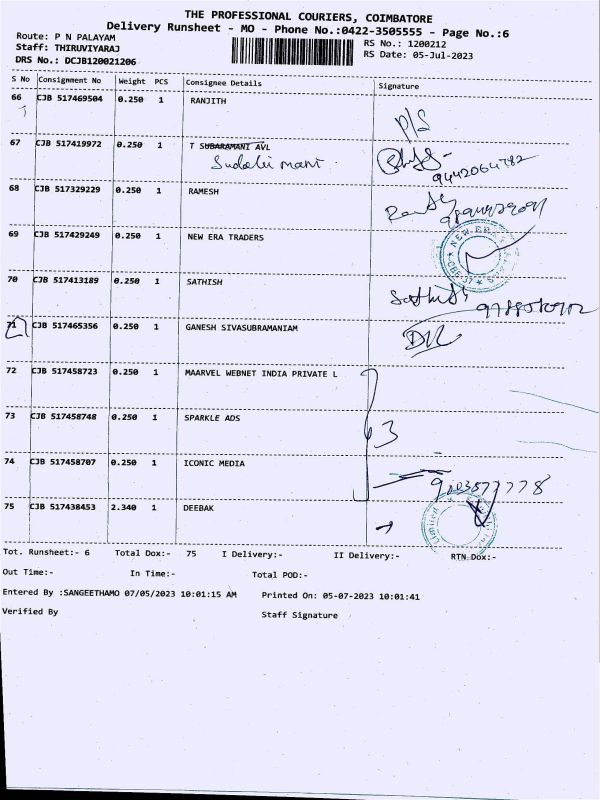 THE PROFESSIONAL COURIERS, COIMBATORE
Delivery Runsheet - MO - Phone No.:0422-3505555 - Page No.:6
Route: P N PALAYAM
Staff: THIRUVIYARAJ
DRS No.: DCJB120021206
RS No.: 1200212
RS Date: 05-Jul-2023
S No Consignment No Weight PCS Consignee Details Signature
66 CJB 517469504 0.250 1 RANJITH P/S
67 CJB 517419972 0.250 1 T SUBARAMANI AVL
9442064782
68 CJB 517329229 0.250 1 RAMESH
69 CJB 517429249 0.250 1 NEW ERA TRADERS
NEW ERA
70 CJB 517413189 0.250 1 SATHISH Sathish
71 CJB 517465356 0.250 1 GANESH SIVASUBRAMANIAM
72 CJB 517458723 0.250 1 MAARVEL WEBNET INDIA PRIVATE L
73 CJB 517458748 0.250 1 SPARKLE ADS 3
74 CJB 517458707 0.250 1 ICONIC MEDIA
75 CJB 517438453 2.340 1 DEEBAK
Limited
Tot. Runsheet:- 6 Total Dox:- 75 I Delivery:- II Delivery:- RTN Dox:-
Out Time:- In Time:- Total POD:-
Entered By :SANGEETHAMO 07/05/2023 10:01:15 AM Printed On: 05-07-2023 10:01:41
Verified By Staff Signature